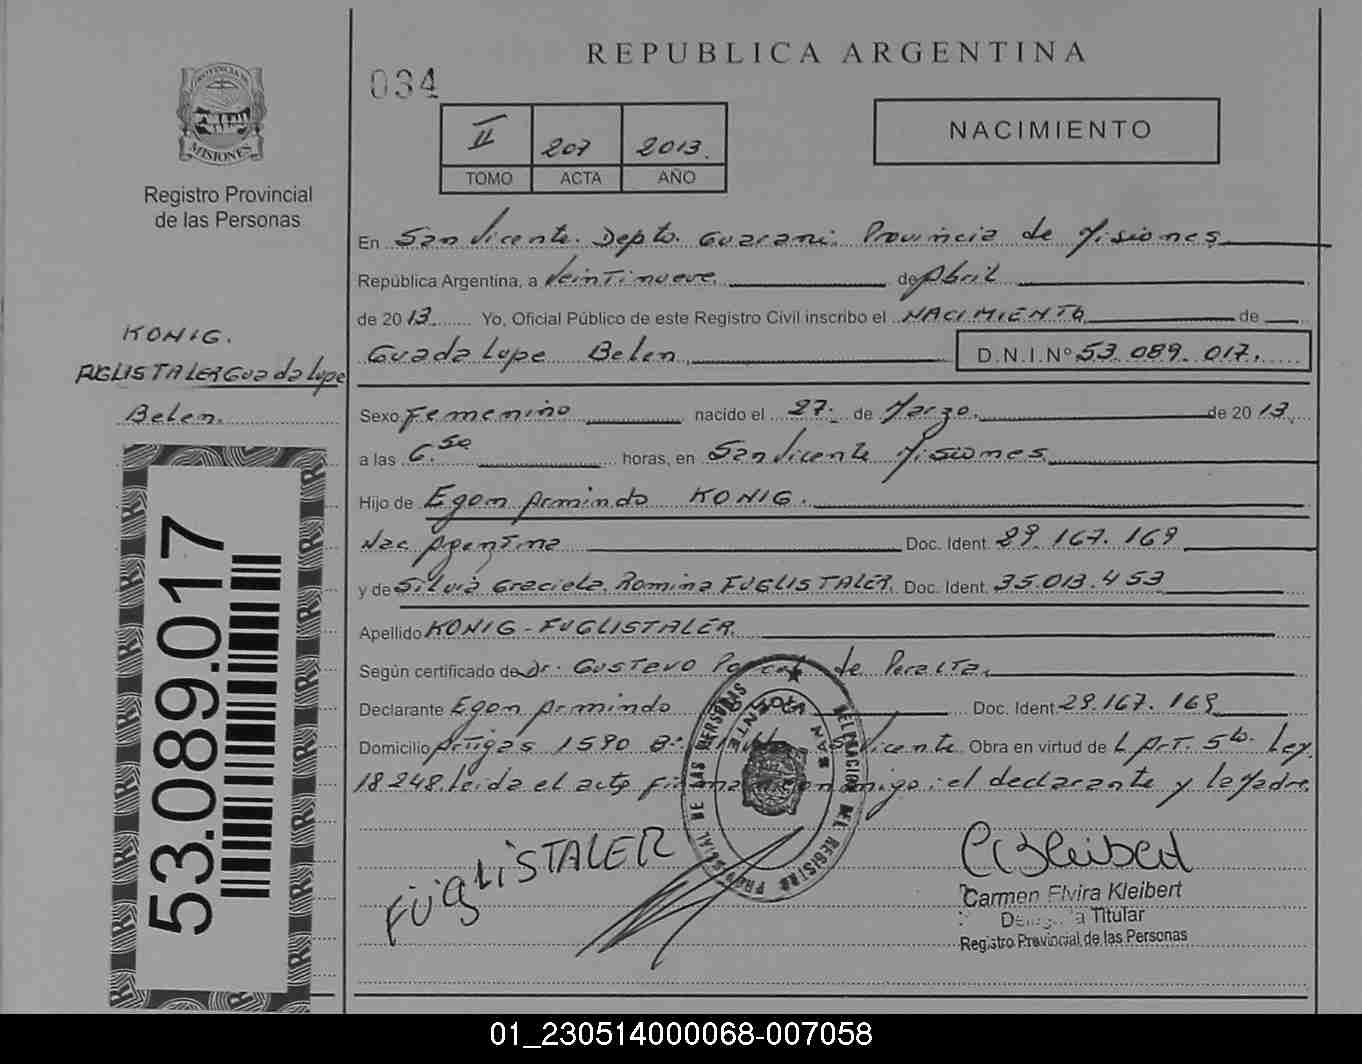 REPUBLICA ARGENTINA
034
II 207 2013.
TOMO ACTA AÑO
NACIMIENTO
PROVINCIA DE
MISIONES
Registro Provincial
de las Personas
En San Vicente. Depto. Guarani. Provincia de Misiones
República Argentina, a Veintinueve. de Abril
de 2013. Yo, Oficial Público de este Registro Civil inscribo el NACIMIENTO de
Guadalupe Belen D.N.I.Nº 53.089.017.
KONIG.
FUGLISTALER Guadalupe
Belen.
Sexo Femenino nacido el 27. de Marzo. de 2013.
a las 6.50 horas, en San Vicente Misiones
Hijo de Egon Armindo KONIG.
Nac Agentina Doc. Ident. 29.167.169
y de Silvia Graciela Romina FUGLISTALER. Doc. Ident. 35.013.453
Apellido KONIG-FUGLISTALER.
Según certificado de Dr. Gustavo de Peralta.
Declarante Egon Armindo Doc. Ident 29.167.169
Domicilio Artigas 1590 Bº. Vicente Obra en virtud de L Art. 5to. Ley.
18.248. leida el acta firma conmigo: el declarante y la Madre.
53.089.017
FÜGLISTALER
DELEGACION DEL REGISTRO PROVINCIAL DE LAS PERSONAS
SAN VICENTE
Carmen Elvira Kleibert
Titular
Registro Provincial de las Personas
01_230514000068-007058